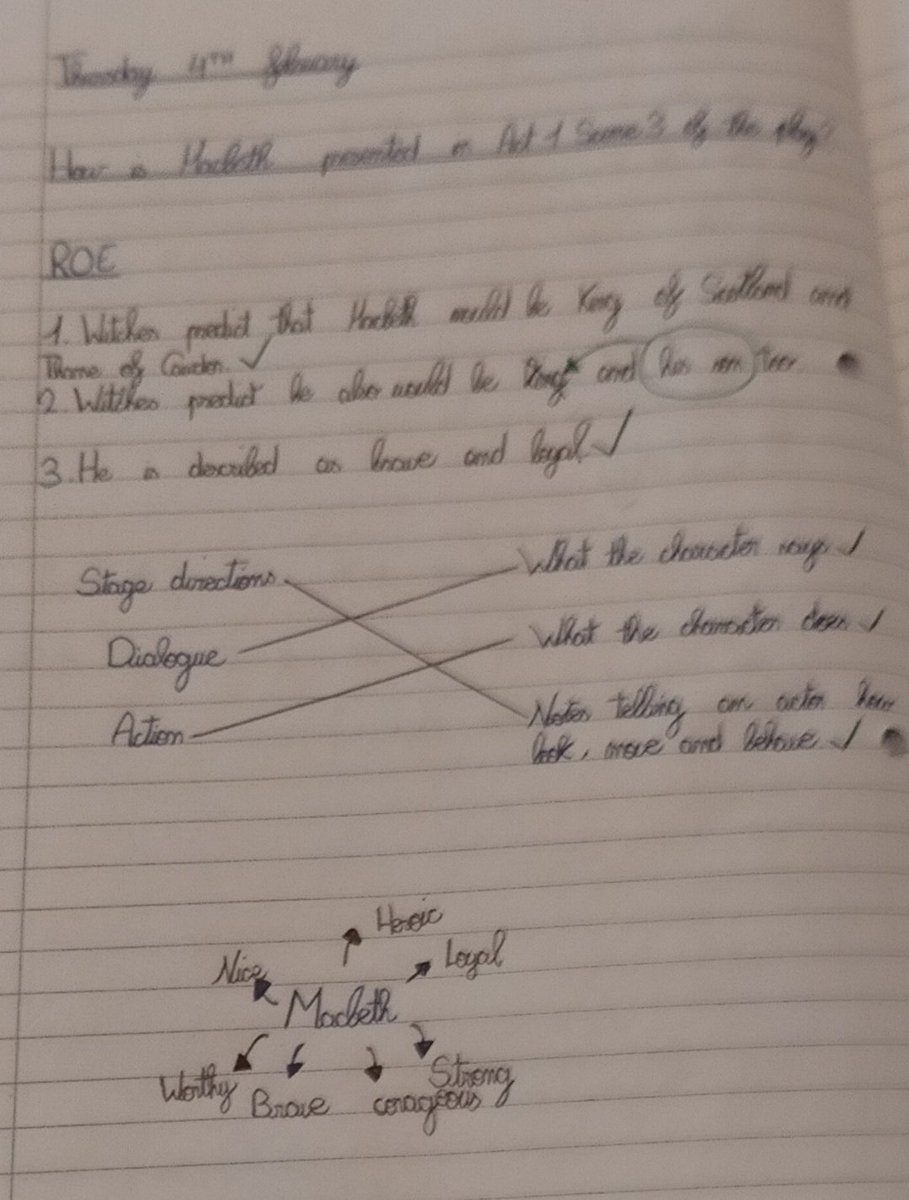 Thursday 4TH February
How is Macbeth presented in Act 1 Scene 3 of the play?
ROE
1. Witches predict that Macbeth would be King of Scotland and
Thane of Cawdor. ✓
2. Witches predict he also would be King and his son
3. He is described as brave and loyal ✓
Stage directions
What the character says ✓
Dialogue
What the character does ✓
Action
Notes telling an actor how
look, move and behave ✓
Heroic
Nice
Loyal
Macbeth
Worthy
Brave
corageous
Strong